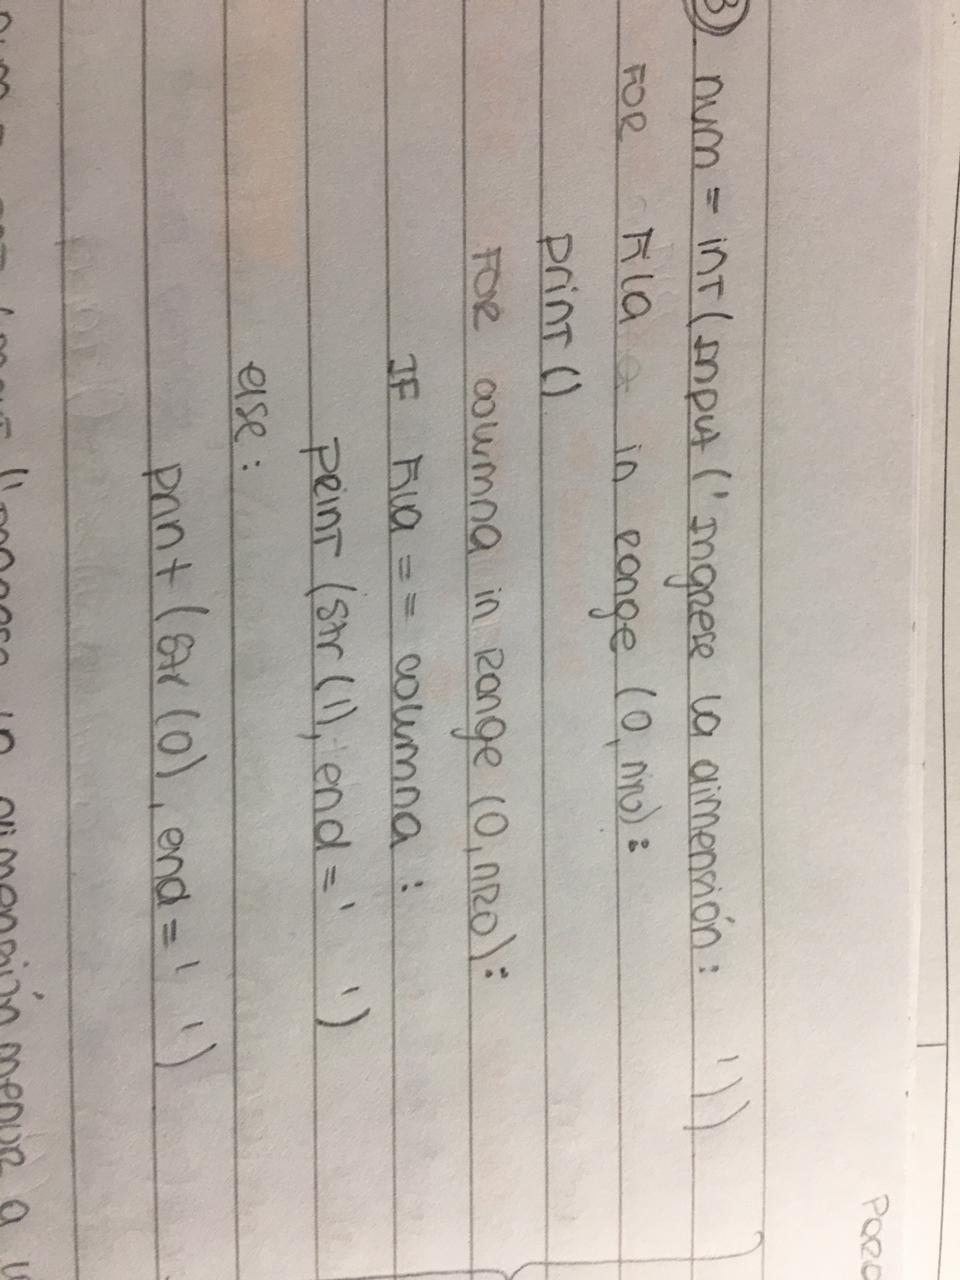 Para
3) num = int(Input('Ingrese la dimensión: '))
FOR Fila in Range (0, nro):
print()
FOR columna in Range (0, nro):
IF Fila == columna :
print (str(1), end=' ')
else:
print (str(0), end=' ')
dimensión menor a